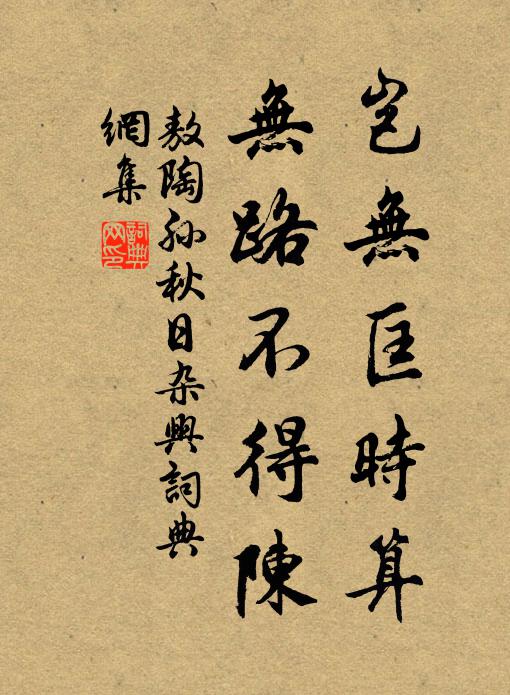 豈無匡時算
無路不得陳
敖陶孫秋日杂興詞典
網集
詞典
网印